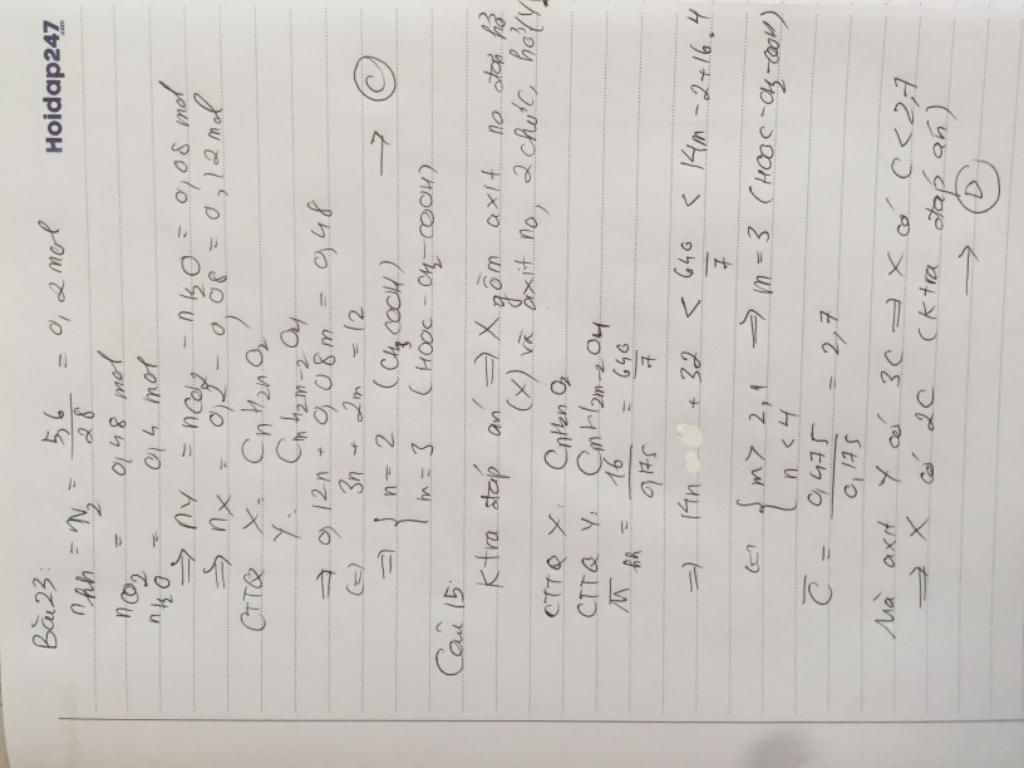 Hoidap247
.com
Bài 23:
n hh = n N2 = 5,6/28 = 0,2 mol
n CO2 = 0,48 mol
n H2O = 0,4 mol
⇒ nY = nCO2 - nH2O = 0,08 mol
⇒ nX = 0,2 - 0,08 = 0,12 mol
CTTQ X: CnH2nO2
Y: CmH2m-2O4
→ 0,12n + 0,08m = 0,48
(=) 3n + 2m = 12
=) { n = 2 (CH3COOH)
m = 3 (HOOC-CH2-COOH) → Ⓒ
Câu 15:
Ktra đáp án ⇒ X gồm axit no đơn hở
(X) và axit no, 2 chức, hở (Y)
CTTQ X: CnH2nO2
CTTQ Y: CmH2m-2O4
M̅ hh = 16/0,175 = 640/7
⇒ 14n + 32 < 640/7 < 14m - 2 + 16.4
(=) { m > 2,1 ⇒ m = 3 (HOOC-CH2-COOH)
n < 4
C̅ = 0,475/0,175 = 2,7
Mà axit Y có 3C ⇒ X có C < 2,7
⇒ X có 2C (Ktra đáp án)
→ Ⓓ